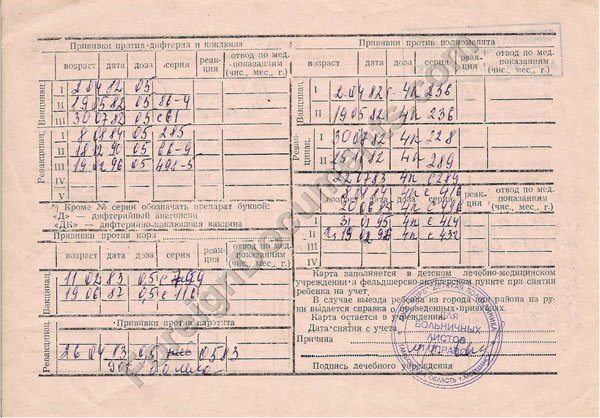 Прививки против дифтерии и коклюша
возраст дата доза серия реакция отвод по мед. показаниям (чис., мес., г.)
Вакцинац.
I 2 04 82 05
II 19 05 82 05 86-4
III 30 07 82 05
Ревакцинац.
I 8 08 84 05 285
II 18 02 90 05 86-9
III 19 02 96 05 498-5
IV
V
* Кроме № серии обозначать препарат буквой:
«Д» — дифтерийный анатоксин
«ДК» — дифтерийно-коклюшная вакцина
Прививки против кори
возраст дата доза серия реакция отвод по мед. показаниям (чис., мес., г.)
Вакцинац.
11 02 83 05
19 06 87 05 с 116
Прививки против паротита
Ревакцинац.
26 04 83 05 0583
Прививки против полиомелита
возраст дата доза серия реакция отвод по мед. показаниям (чис., мес., г.)
Вакцинац.
I 2 04 82 г. 4к 236
II 19 05 82 4к 236
Ревакцинац.
I 30 07 82 4к 228
II 25 11 82 4к 289
22 07 83 4к с 289
8 08 84 4к с 416
возраст дата доза серия реакция отвод по мед. показаниям (чис., мес., г.)
I
II 31 01 95 4к с 414
III 19 02 96 4к с 432
IV
Карта заполняется в детском лечебно-медицинском
учреждении и фельдшерско-акушерском пункте при снятии
ребенка на учет.
В случае выезда ребенка из города или района на руки выдается справка о проведенных прививках.
Карта остается в учреждении.
Дата снятия с учета
Причина
Подпись лечебного учреждения
ДЛЯ
БОЛЬНИЧНЫХ
ЛИСТОВ
И СПРАВОК
ForeignDocuments.com